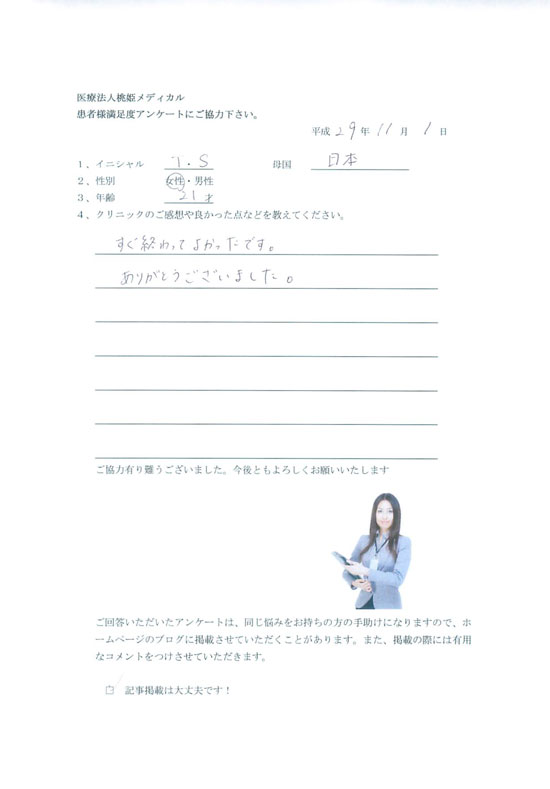 医療法人桃姫メディカル
患者様満足度アンケートにご協力下さい。
平成 29 年 11 月 1 日
1、イニシャル T.S 母国 日本
2、性別 女性・男性
3、年齢 21才
4、クリニックのご感想や良かった点などを教えてください。
すぐ終わってよかったです。
ありがとうございました。
ご協力有り難うございました。今後ともよろしくお願いいたします
ご回答いただいたアンケートは、同じ悩みをお持ちの方の手助けになりますので、ホ
ームページのブログに掲載させていただくことがあります。また、掲載の際には有用
なコメントをつけさせていただきます。
□ 記事掲載は大丈夫です！